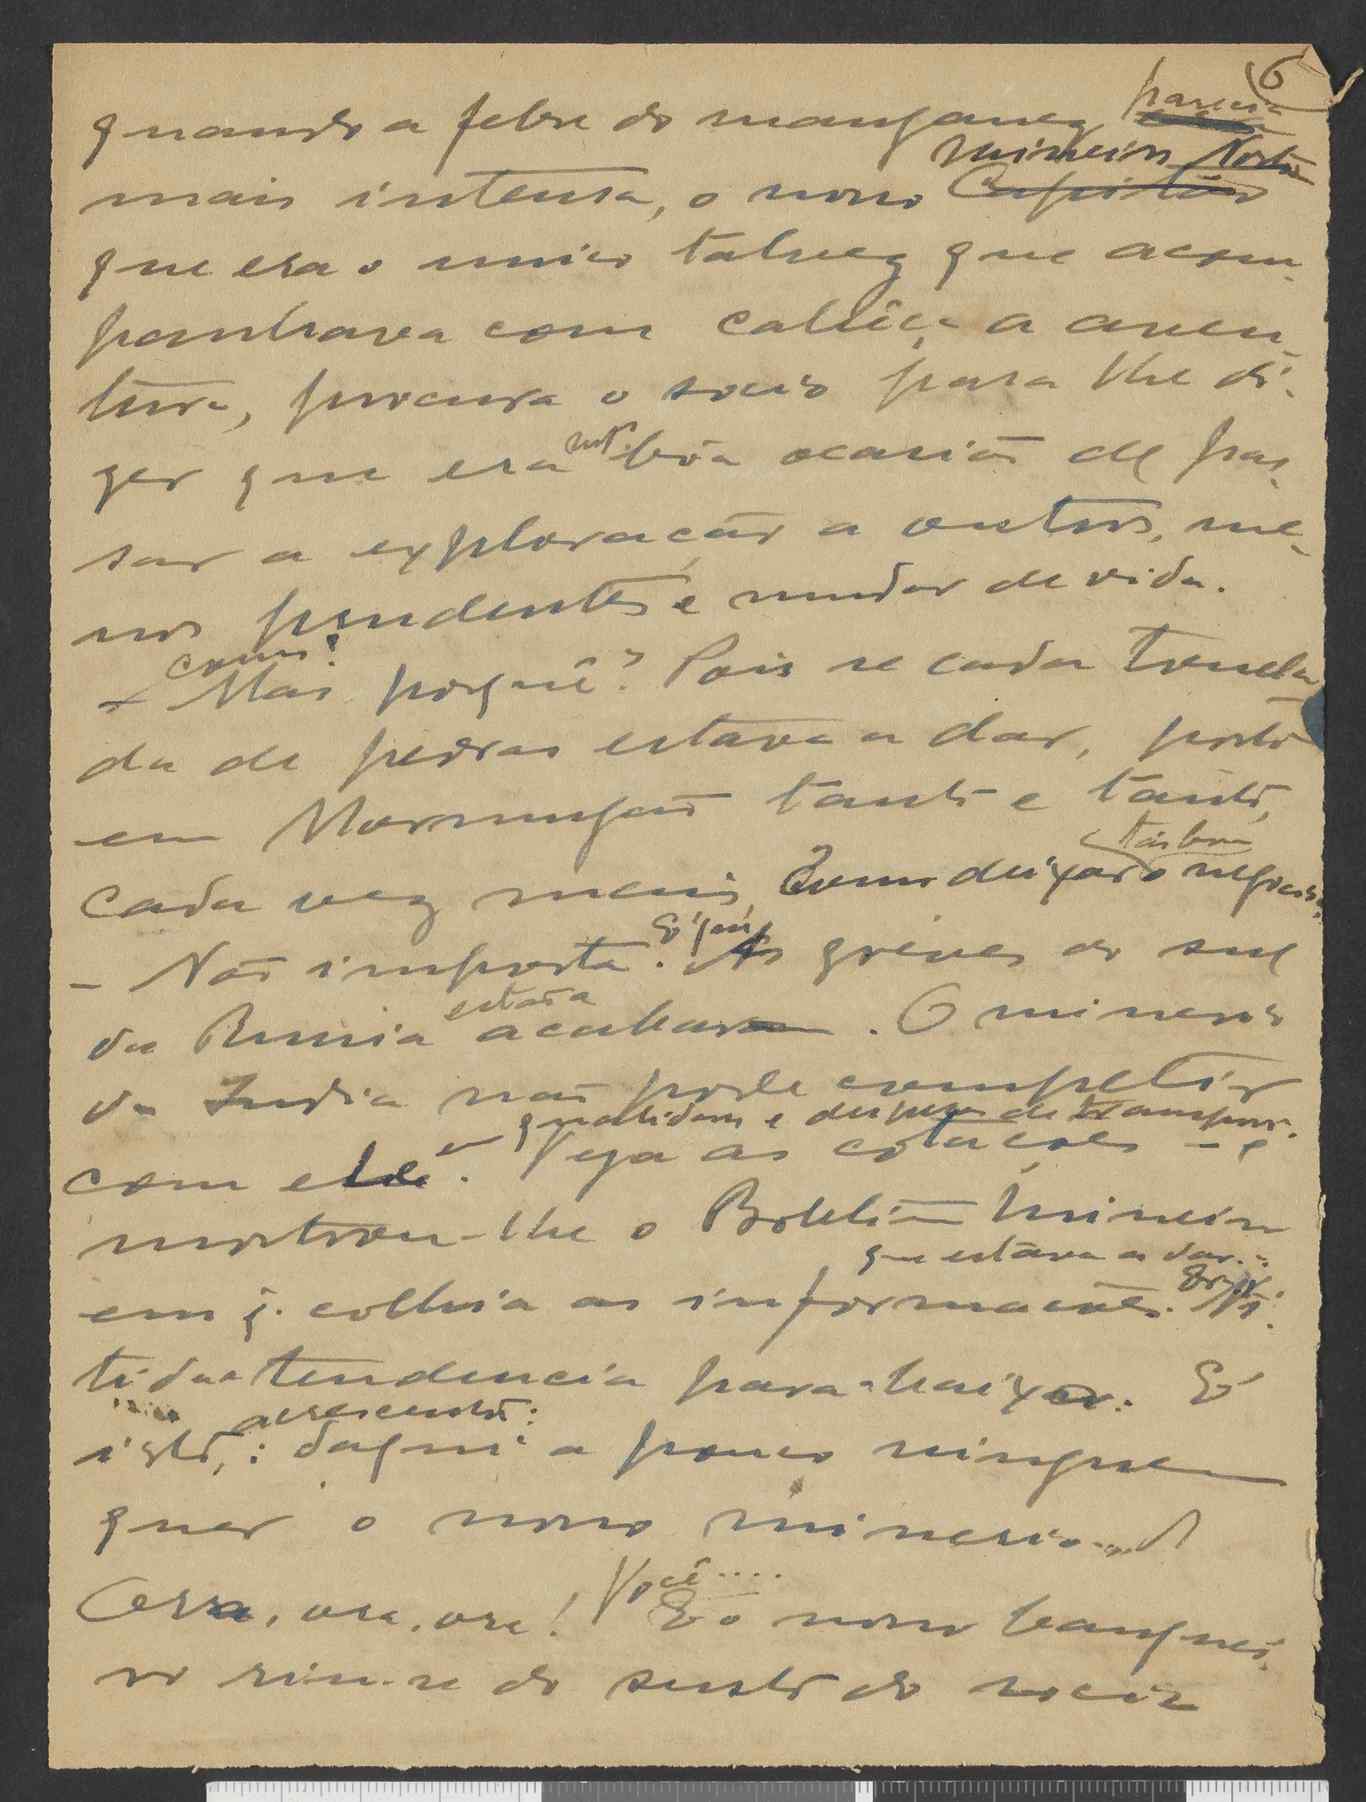 6
quando a febre do manganez parecia
mais intensa, o novo mineiro Norton
que era o unico talvez que acom-
panhava com cabeça a aven-
tura, procura o socio para lhe di-
zer que era bôa ocasião de pas-
sar a exploração a outros, me-
nos prudentes e mudar de vida.
Como?
- Mas porquê? Pois se cada tonela
da de pedras estava a dar, posto
em Mormugão tanto e tanto,
cada vez mais, Como deixar o negocio,
tão bom
- Não importa. É que As gréves do sul
da Russia estão a acabar. O minerio
da India não pode competir
qualidade e despeza de transpor.
com ele. Veja as cotações - e
mostrou-lhe o Boletim Mineiro
que estava a dar.
em q. colhia as informações. Ni-
tida tendencia para baixar. É
acrescentou:
isto, : daqui a pouco ninguem
quer o nosso minerio...
Você....
Ora, ora, ora! E o novo banquei-
ro riu-se do susto do socio